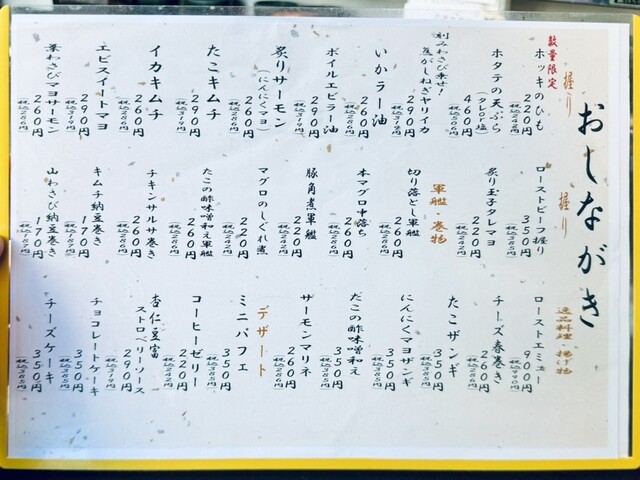 おしながき
握り
数量限定
ホッキのひも
220円
税込242円
ホタテの天ぷら
(タレor塩)
460円
税込506円
刻みわさび乗せ!
焦がしねぎヤリイカ
290円
税込319円
いかラー油
260円
税込286円
ボイルエビラー油
290円
税込319円
炙りサーモン
(にんにくマヨ)
260円
税込286円
たこキムチ
290円
税込319円
イカキムチ
260円
税込286円
エビスイートマヨ
290円
税込319円
茎わさびマヨサーモン
260円
税込286円
握り
ローストビーフ握り
350円
税込385円
炙り玉子タレマヨ
220円
税込242円
軍艦・巻物
切り落とし軍艦
260円
税込286円
本マグロ中落ち
260円
税込286円
豚角煮軍艦
220円
税込242円
マグロのしぐれ煮
220円
税込242円
たこの酢味噌和え軍艦
260円
税込286円
チキンサルサ巻き
260円
税込286円
キムチ納豆巻き
170円
税込187円
山わさび納豆巻き
170円
税込187円
逸品料理・揚げ物
ローストエミュー
900円
税込990円
チーズ春巻き
260円
税込286円
たこザンギ
350円
税込385円
にんにくマヨザンギ
350円
税込385円
たこの酢味噌和え
350円
税込385円
サーモンマリネ
260円
税込286円
デザート
ミニパフェ
350円
税込385円
コーヒーゼリー
220円
税込242円
杏仁豆富
ストロベリーソース
290円
税込319円
チョコレートケーキ
350円
税込385円
チーズケーキ
350円
税込385円